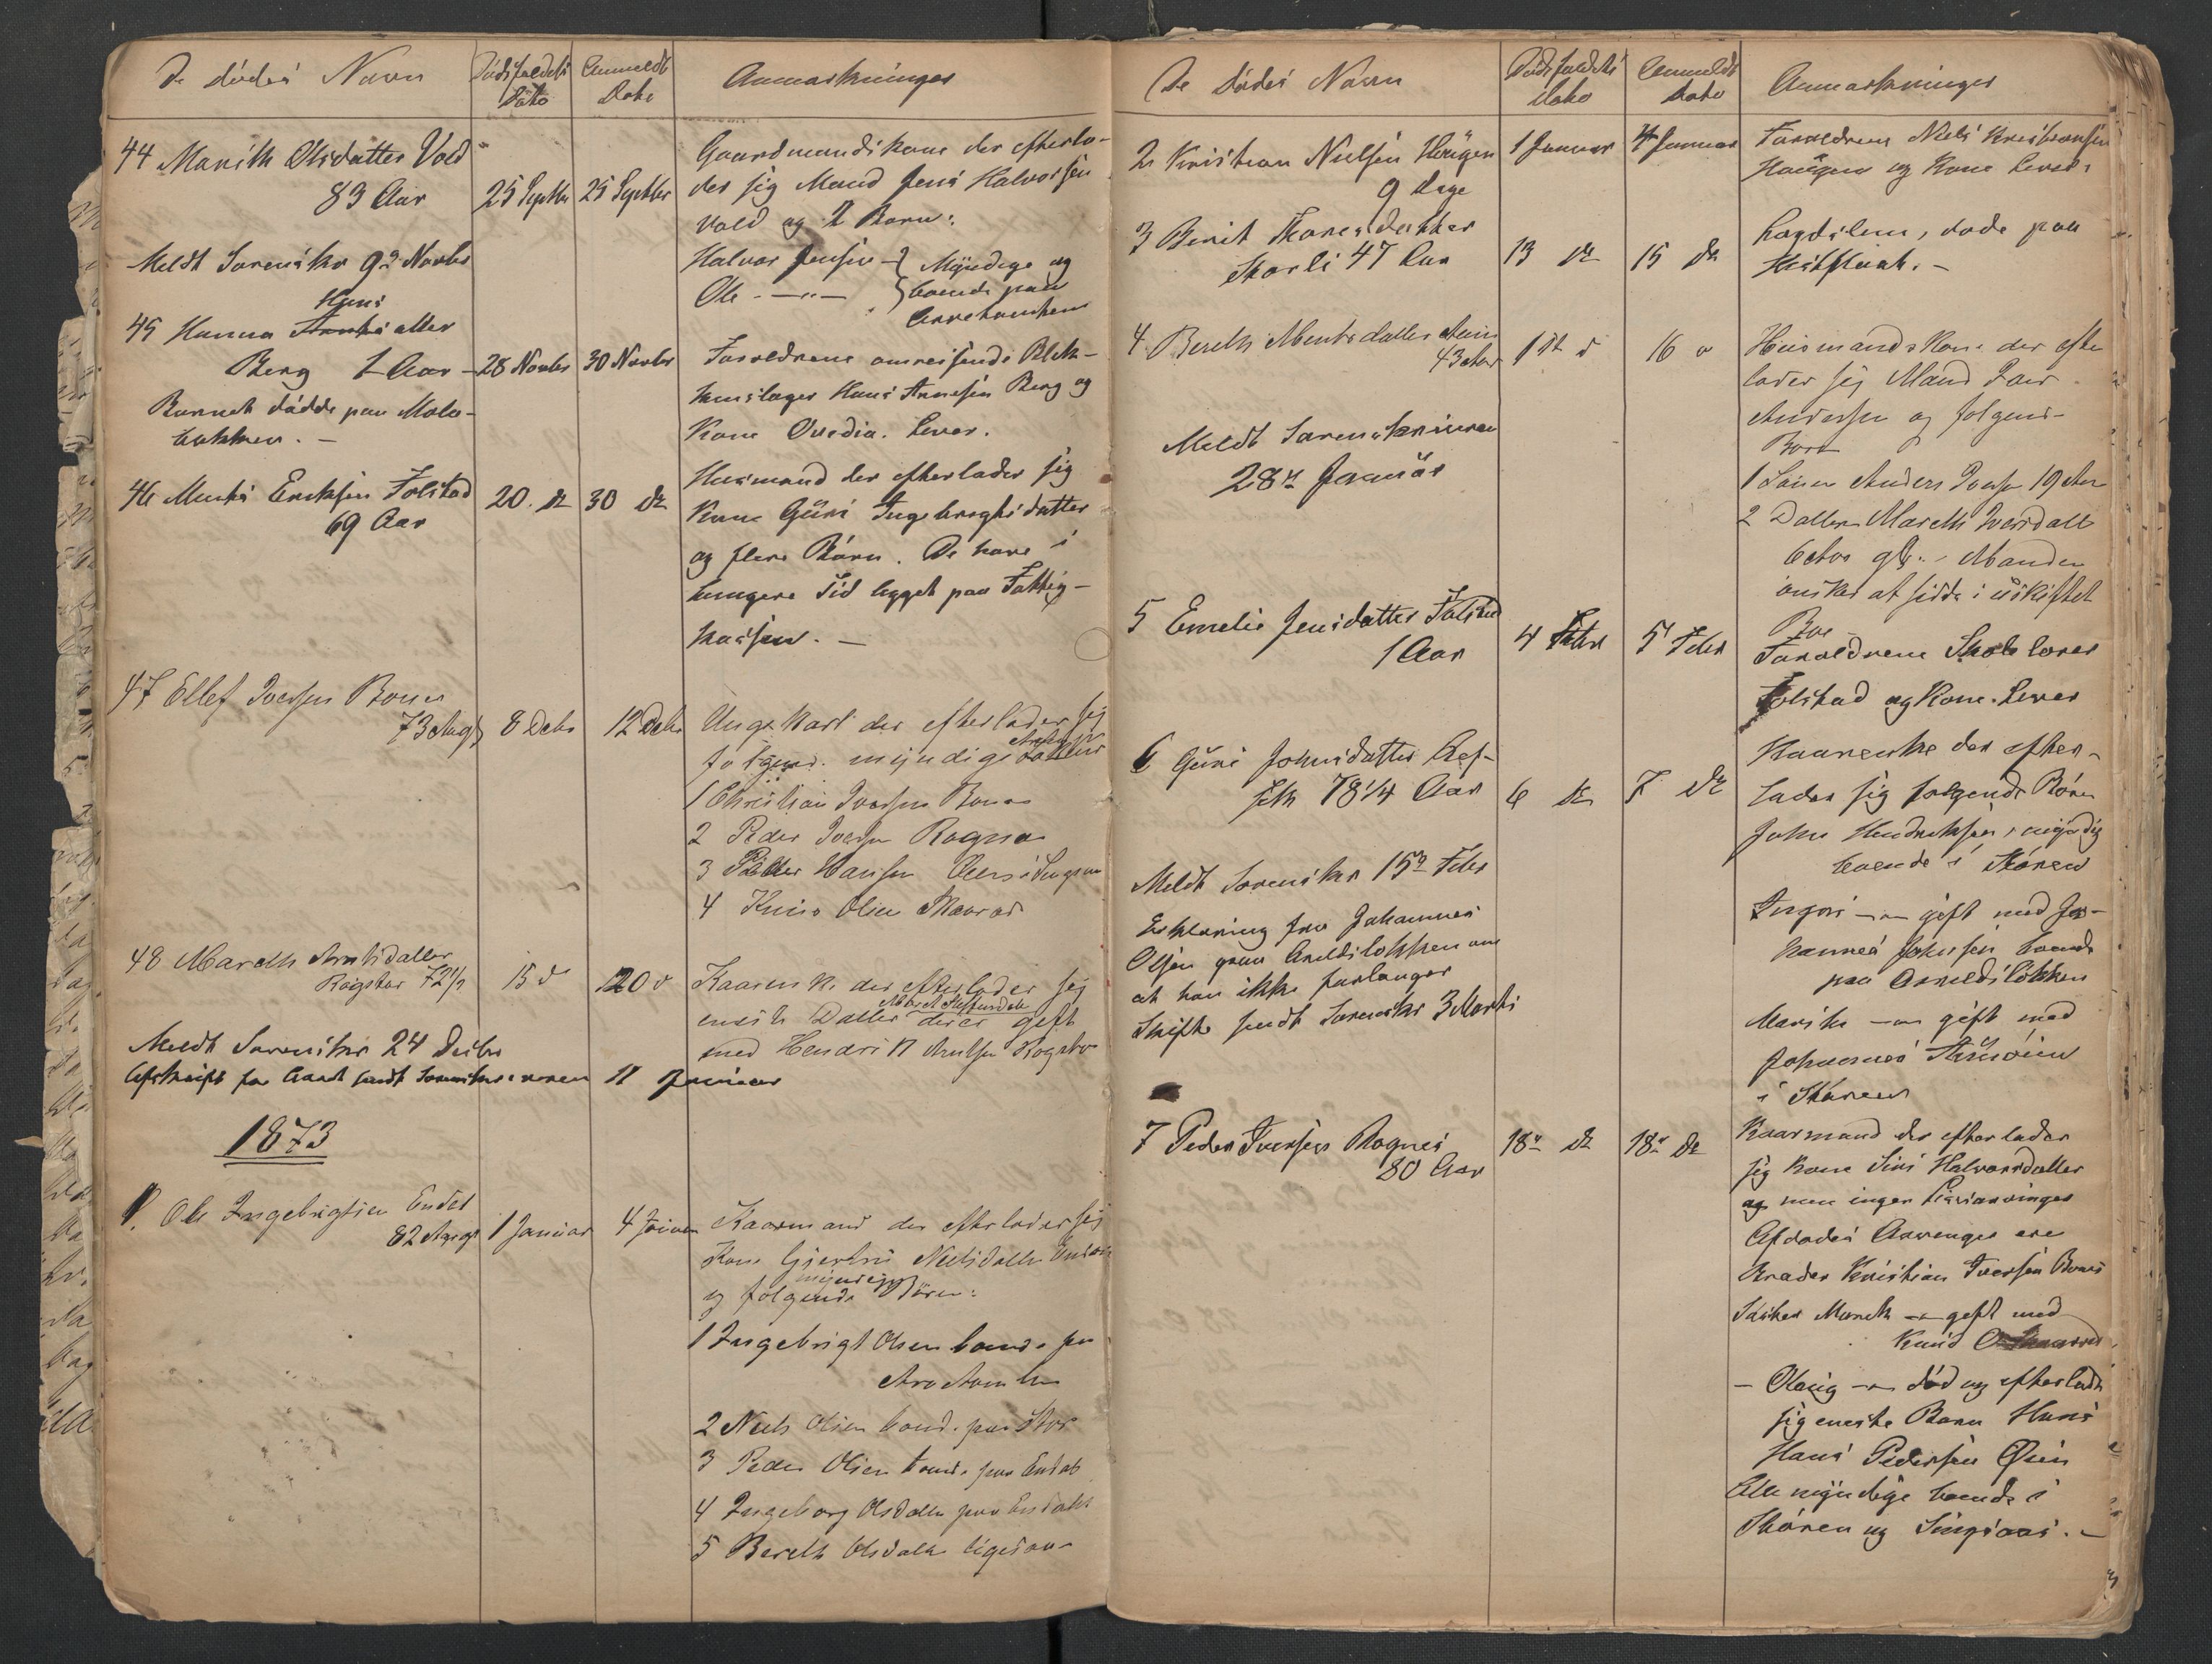 De dødes Navn Dødsfaldets Dato Anmeldt Dato Anmærkninger
44 Marith Olsdatter Vold
83 Aar 25 Septbr 25 Septbr
Gaardmandskone der efterla-
der sig Mand Jens Halvorsen
Vold og 2 Børn:
Halvor Jensen } Myndige og
Ole - " - } boende paa
Meldt Sorenskr 9de Novbr
45 Hanna Hans datter
Berg 1 Aar 28 Novbr 30 Novbr
Barnet dødde paa Molo-
bakken. -
Forældrene omreisende Blik-
kenslager Hans Arnesen Berg og
Kone Ovedia. Lever.
46 Eriksen Folstad
69 Aar 20 do 30 do
Husmand der efterlader sig
Kone Guri Ingebregtsdatter
og flere Børn. De have i
lengere Tid ligget paa Fattig-
kassen. -
47 Ellef Iversen Bones
73 Aar gl 8 Decbr 12 Decbr
Ungkarl der efterlader sig
følgend. myndige
1 Christian Iversen Bones
2 Peder Iversen Rognes
3 Hansen
4 Olsen
48 Mareth
72 1/2 15 d 20 d
Kaarenke der efterlader sig
enest Datter geft
med Hendrik
Meldt Sorenskr 24 Decbr
Afskrift for Aaret sendt Sorenskriveren 11 Januar
1873
1. Ole Ingebrigtsen Endal
82 Aar gl 1 Januar 4 Januar
Kaarmand der efterlader sig
Kone Gjertru Nielsdatter
og følgende myndige Børn:
1 Ingebrigt Olsen boende paa
2 Niels Olsen boend. paa
3 Peder Olsen boend. paa Endal
4 Ingeborg Olsdatter paa Endal
5 Bereth Olsdatter ligesaa
De dødes Navn Dødsfaldets Dato Anmeldt Dato Anmærkninger
2 Kristian Nielsen Haugen 1 Januar 4 Januar
9 Dage
Forældrene Niels Kristiansen
Haugen og Kone Lever
3 Berit Thoresdatter
Storli 47 Aar 13 do 15 do
Lægdslem, døde paa
4 Bereth
43 Aar 16 d
Husmandskone der efte
lader sig Mand Iver
Andersen og følgend-
Børn
1 Sønen Anders Iversen 19 Aar
2 Datter Mareth Iversdatt
6 Aar gl. - Manden
ønsker at sidde i uskiftet
Boe
Meldt Sorenskriveren
28de Januar
5 Emelie Jensdatter Folstad
1 Aar 4 Febr 5 Febr
Forældrene Skolelærer
Folstad og Kone. Lever
6 Guri Johnsdatter
78 1/4 Aar 6 do 7 do
Kaarenke der efter-
lader sig følgende Børn
John Hendriksen, myndig
boende i Støren
Ingri - " - gift med Jo-
hannes Johnsen boende
paa Arneldsløkken
Marith - " - gift med
Johannes
i Støren
Meldt Sorenskr 15de Febr
Erklæring fra Johannes
Olsen paa Arneldsløkken om
at han ikke forlanger
Skifte sendt Sorenskr 3 Marts
7 Peder Iversen Rognes
80 Aar 18de do 18de do
Kaarmand der efterlader
sig Kone Siri Halvorsdatter
og men ingen Livsarvinger
Afdødes Arvinger ere
Broder Kristian Iversen Bones
Søster Mareth - " - geft med
Knud
- Olaug - " - død og efterladt
sig eneste Barn Hans
Hans Pedersen Øien
Alle myndige boende i
Støren og Singsaas. -